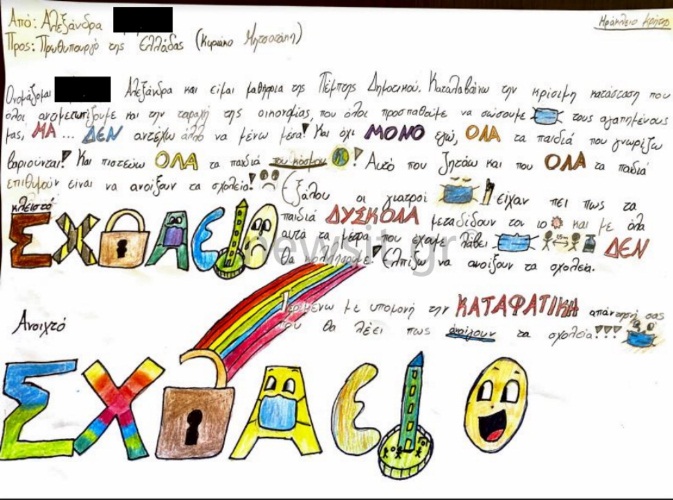 Από: Αλεξάνδρα
Ηράκλειο Κρήτης
Προς: Πρωθυπουργό της Ελλάδας (Κυριάκο Μητσοτάκη)
Ονομάζομαι Αλεξάνδρα και είμαι μαθήτρια της Πέμπτης Δημοτικού. Καταλαβαίνω την κρίσιμη κατάσταση που
όλοι αντιμετωπίζουμε και την ταραχή της οικονομίας, που όλοι προσπαθείτε να σώσουμε τους αγαπημένους
μας, ΜΑ ... ΔΕΝ αντέχω άλλο να μένω μέσα! Και όχι ΜΟΝΟ εγώ, ΟΛΑ τα παιδιά που γνωρίζω
βαριούνται! Και πιστεύω ΟΛΑ τα παιδιά του κόσμου! Αυτό που ζητάω και που ΟΛΑ τα παιδιά
επιθυμούν είναι να ανοίξουν τα σχολεία! Εξάλου οι γιατροί είχαν πει πως τα
κλειστό
παιδιά ΔΥΣΚΟΛΑ μεταδίδουν τον ιό και με όλα
ΣΧΟΛΕΙΟ
αυτά τα μέτρα που έχουμε λάβει ΔΕΝ
newsit.gr
θα κολλήσουμε! Ελπίζω να ανοίξουν τα σχολεία.
Περιμένω με υπομονή την ΚΑΤΑΦΑΤΙΚΗ απάντησή σας
Ανοιχτό
που θα λέει πως ανοίγουν τα σχολεία!!!
ΣΧΟΛΕΙΟ